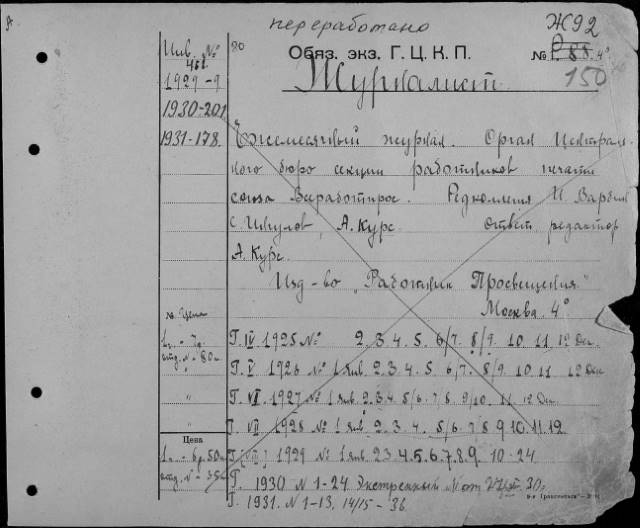 переработано
Ж92
Инв. №
Обяз. экз. Г.Ц.К.П.
№ 88. 4°
150
1929-9
Журналист.
1930-201
1931-178.
Ежемесячный журнал. Орган Централь
ного бюро секции работников печати
союза Всеработпрос. Редколлегия И. Вардин
С. Ингулов, А. Курс. Ответ. редактор
А. Курс.
Изд-во „Работник Просвещения"
Москва. 4°
№ Цена
Г. IV 1925 № 2. 3. 4. 5. 6/7. 8/9. 10. 11. 12 Дек.
Г. V 1926 № 1 янв. 2. 3. 4. 5. 6/7. 8/9. 10. 11. 12 Дек
Г. VI. 1927 № 1 янв. 2. 3. 4. 5/6. 7/8. 9/10. 11. 12 Дек.
Г. VII 1928 № 1 янв. 2. 3. 4. 5/6. 7/8 9 10. 11. 12.
Цена
1929 № 1 янв. 2 3 4. 5. 6. 7. 8. 9. 10-24.
Г. 1930 № 1-24 Экстренный № от
Г. 1931. № 1-13. 14/15 - 36